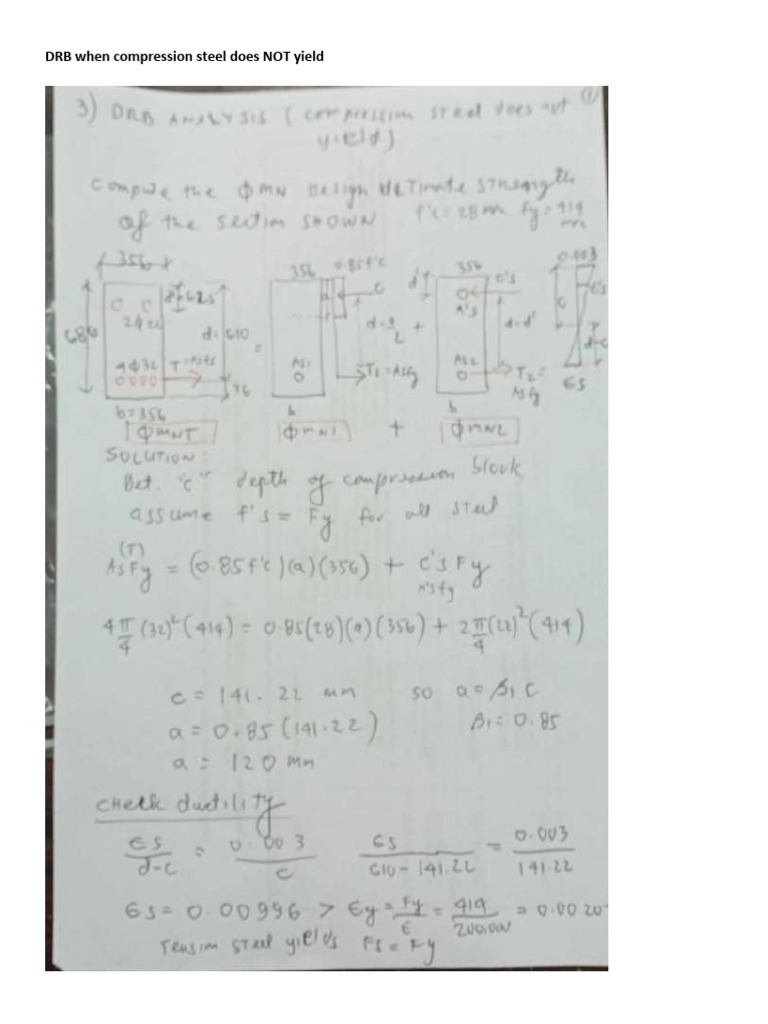 DRB when compression steel does NOT yield
①
3) DRB ANALYSIS (compression steel does not
yield)
Compute the ϕMN Design ultimate strength
of the section SHOWN f'c = 28 fy = 414
356
d' 62.5
686
2ϕ22
d = 610
4ϕ32
T = Asfs
76
b = 356
ϕMNT
=
356
0.85f'c
C
As1
T1 = Asfy
b
ϕMN1
+
d'
356
C's
A's
d-d'
As2
T2 =
Asfy
b
+
ϕMN2
0.003
C
d-c
ϵs
SOLUTION:
Det. "c" depth of compression block
assume f's = Fy for all steel
(T)
AsFy = (0.85f'c)(a)(356) + C's Fy
A'sfy
4 π/4 (32)² (414) = 0.85(28)(a)(356) + 2 π/4 (22)² (414)
c = 141.22 mm so a = β1 C
a = 0.85 (141.22) β1 = 0.85
a = 120 mm
Check ductility
ϵs/d-c = 0.003/c ϵs/610-141.22 = 0.003/141.22
ϵs = 0.00996 > ϵy = Fy/E = 414/200,000 = 0.0020
Tension steel yields Fs = Fy